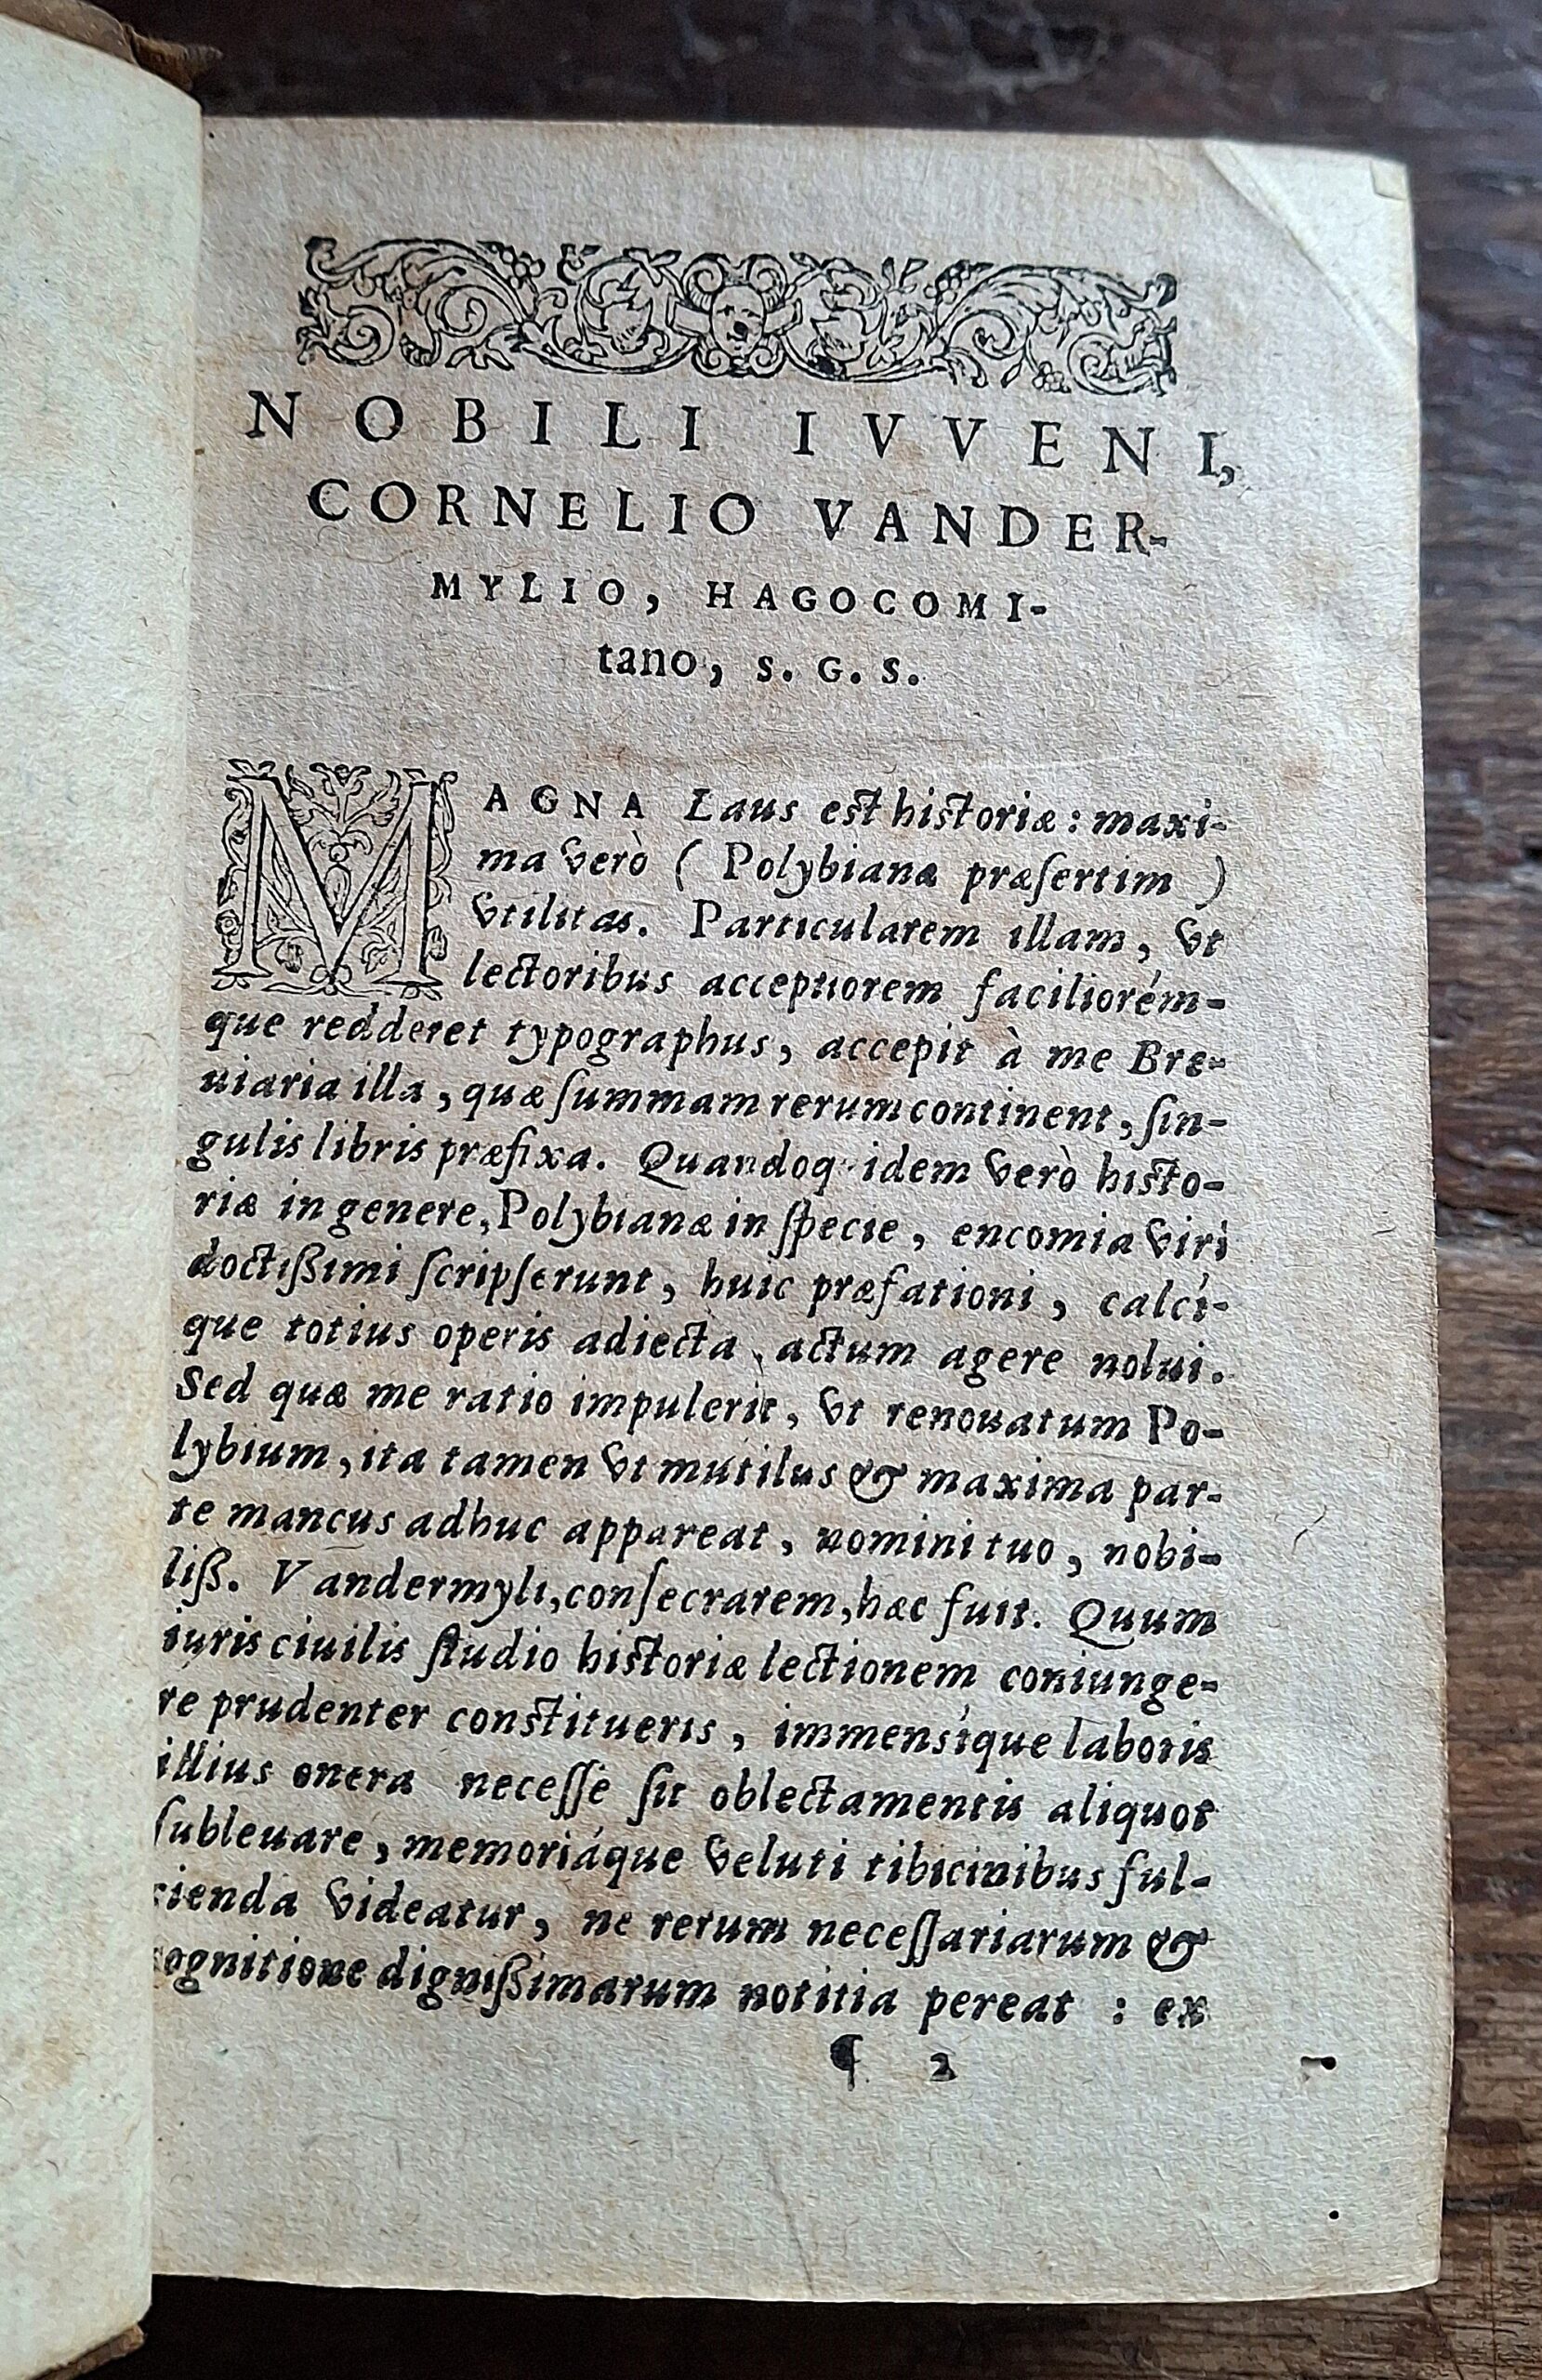 NOBILI IVVENI,
CORNELIO VANDER-
MYLIO, HAGOCOMI-
tano, S. G. S.
MAGNA Laus est historiæ: maxi-
ma verò ( Polybianæ præſertim )
vtilitas. Particularem illam, vt
lectoribus acceptiorem faciliorém-
que redderet typographus, accepit à me Bre-
uiaria illa, quæ ſummam rerum continent, ſin-
gulis libris præfixa. Quandoq idem verò histo-
riæ in genere, Polybianæ in ſpecie, encomia viri
doctißimi ſcripſerunt, huic præfationi, calcí-
que totius operis adiecta, actum agere nolui.
Sed quæ me ratio impulerit, vt renouatum Po-
lybium, ita tamen vt mutilus & maxima par-
te mancus adhuc appareat, nomini tuo, nobi-
liß. Vandermyli, conſecrarem, hæc fuit. Quum
iuris ciuilis ſtudio historiæ lectionem coniunge-
re prudenter constitueris, immensíque laboris
illius onera neceſſe ſit oblectamentis aliquot
ſubleuare, memoriáque veluti tibicinibus ful-
cienda videatur, ne rerum neceſſariarum &
cognitione dignißimarum notitia pereat : ex
¶ 2